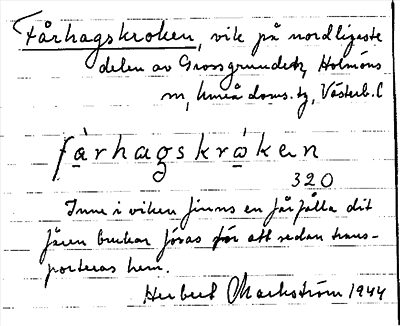 Fårhagskroken, vik på nordligaste
delen av Grossgrundet, Holmöns
sn, Umeå doms. tg, Västerb. l
fårhagskrọkɐn
320
Inne i viken finns en fårfålla dit
fåren brukar föras för att sedan trans-
porteras hem.
Herbert Markström 1944